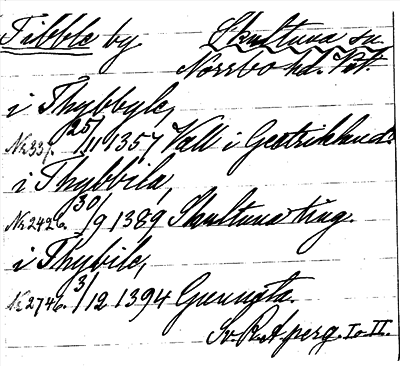 Tibble by Skultuna sn.
Norrbo hd. Vstm.
i Thybbyle,
Nr 337. 25/11 1357 Vall i Gestrikland.
i Thybbila,
Nr 2426. 30/9 1389 Skultuna ting.
i Thybile,
Nr 2746. 3/12 1394
Sv. R. A. perg. I o II.